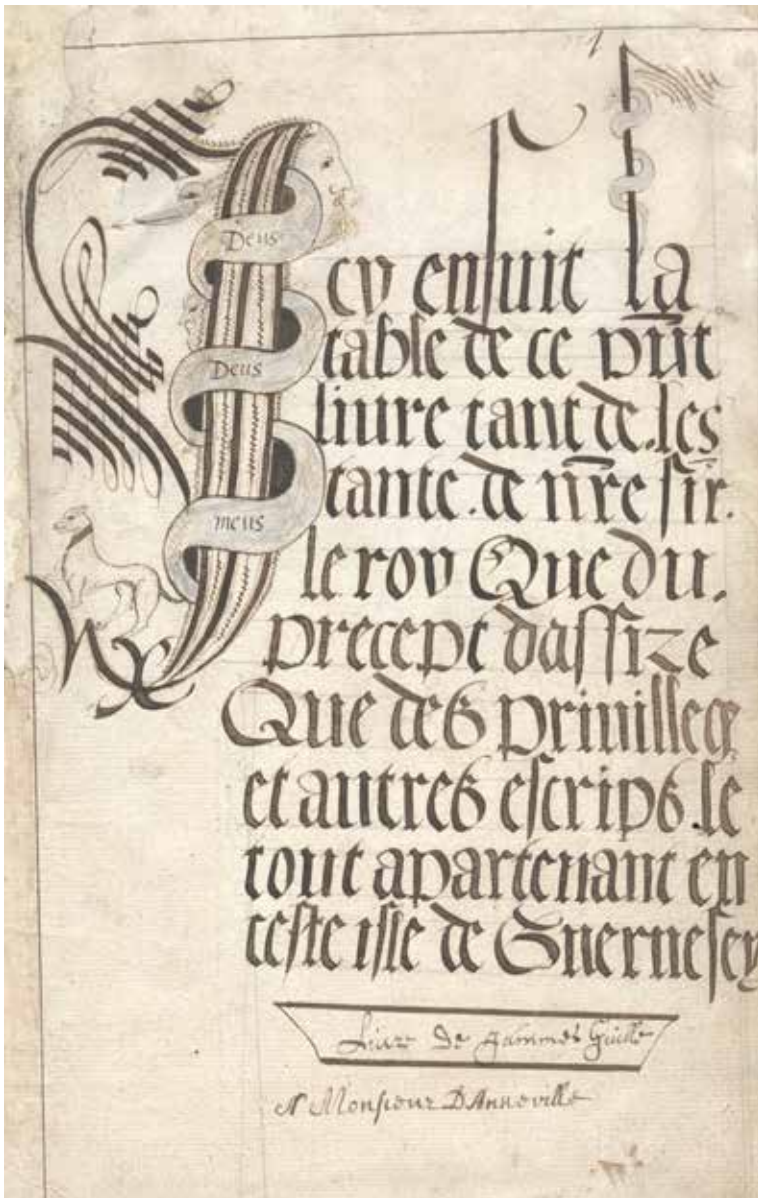 1
Deus
Deus
meus
Icy ensuit la
table de ce pñt
liure tant de les
tante de nr̃e sir̃.
le roy Que du.
precept dassize
Que des priuilleges
et autres escrips le
tout apartenant en
ceste isle de Guernesey
Liure de Jammes Guille
A Monsieur D'Anneville